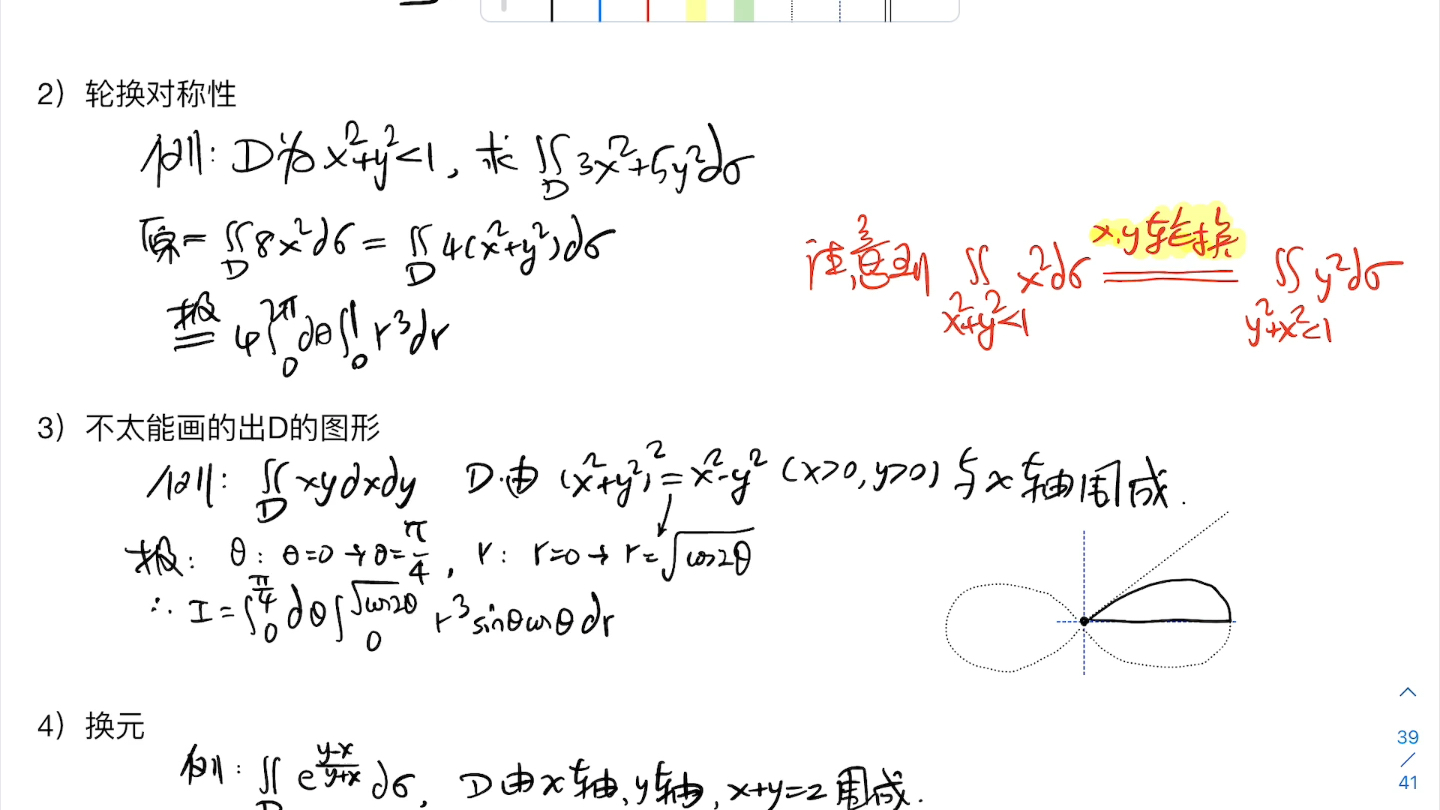 2）轮换对称性
例: D为 x²+y²<1, 求 ∬_D 3x²+5y²dσ
原= ∬_D 8x²dσ = ∬_D 4(x²+y²)dσ
极= 4∫_0^{2π} dθ∫_0^1 r³dr
注意到 ∬_{x²+y²<1} x²dσ =(x.y轮换)= ∬_{y²+x²<1} y²dσ
3）不太能画的出D的图形
例: ∬_D xydxdy D由 (x²+y²)²=x²-y² (x>0,y>0) 与x轴围成.
极: θ: θ=0→θ=π/4, r: r=0→r=√cos2θ
∴ I=∫_0^{π/4} dθ∫_0^{√cos2θ} r³sinθcosθdr
4）换元
例: ∬_D e^{(y-x)/(y+x)} dσ, D由x轴、y轴, x+y=2围成.
39
/
41